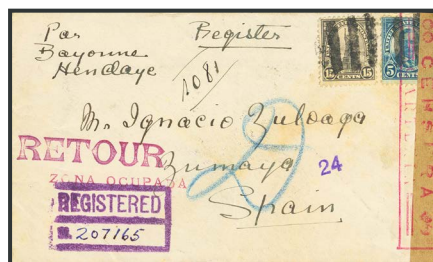 Par
Bayonne
Hendaye
Register
1081
15 CENTS 15
5 CENTS
Mr Ignacio Zuloaga
Zumaya
Spain
RETOUR
ZONA OCUPADA
24
REGISTERED
207165